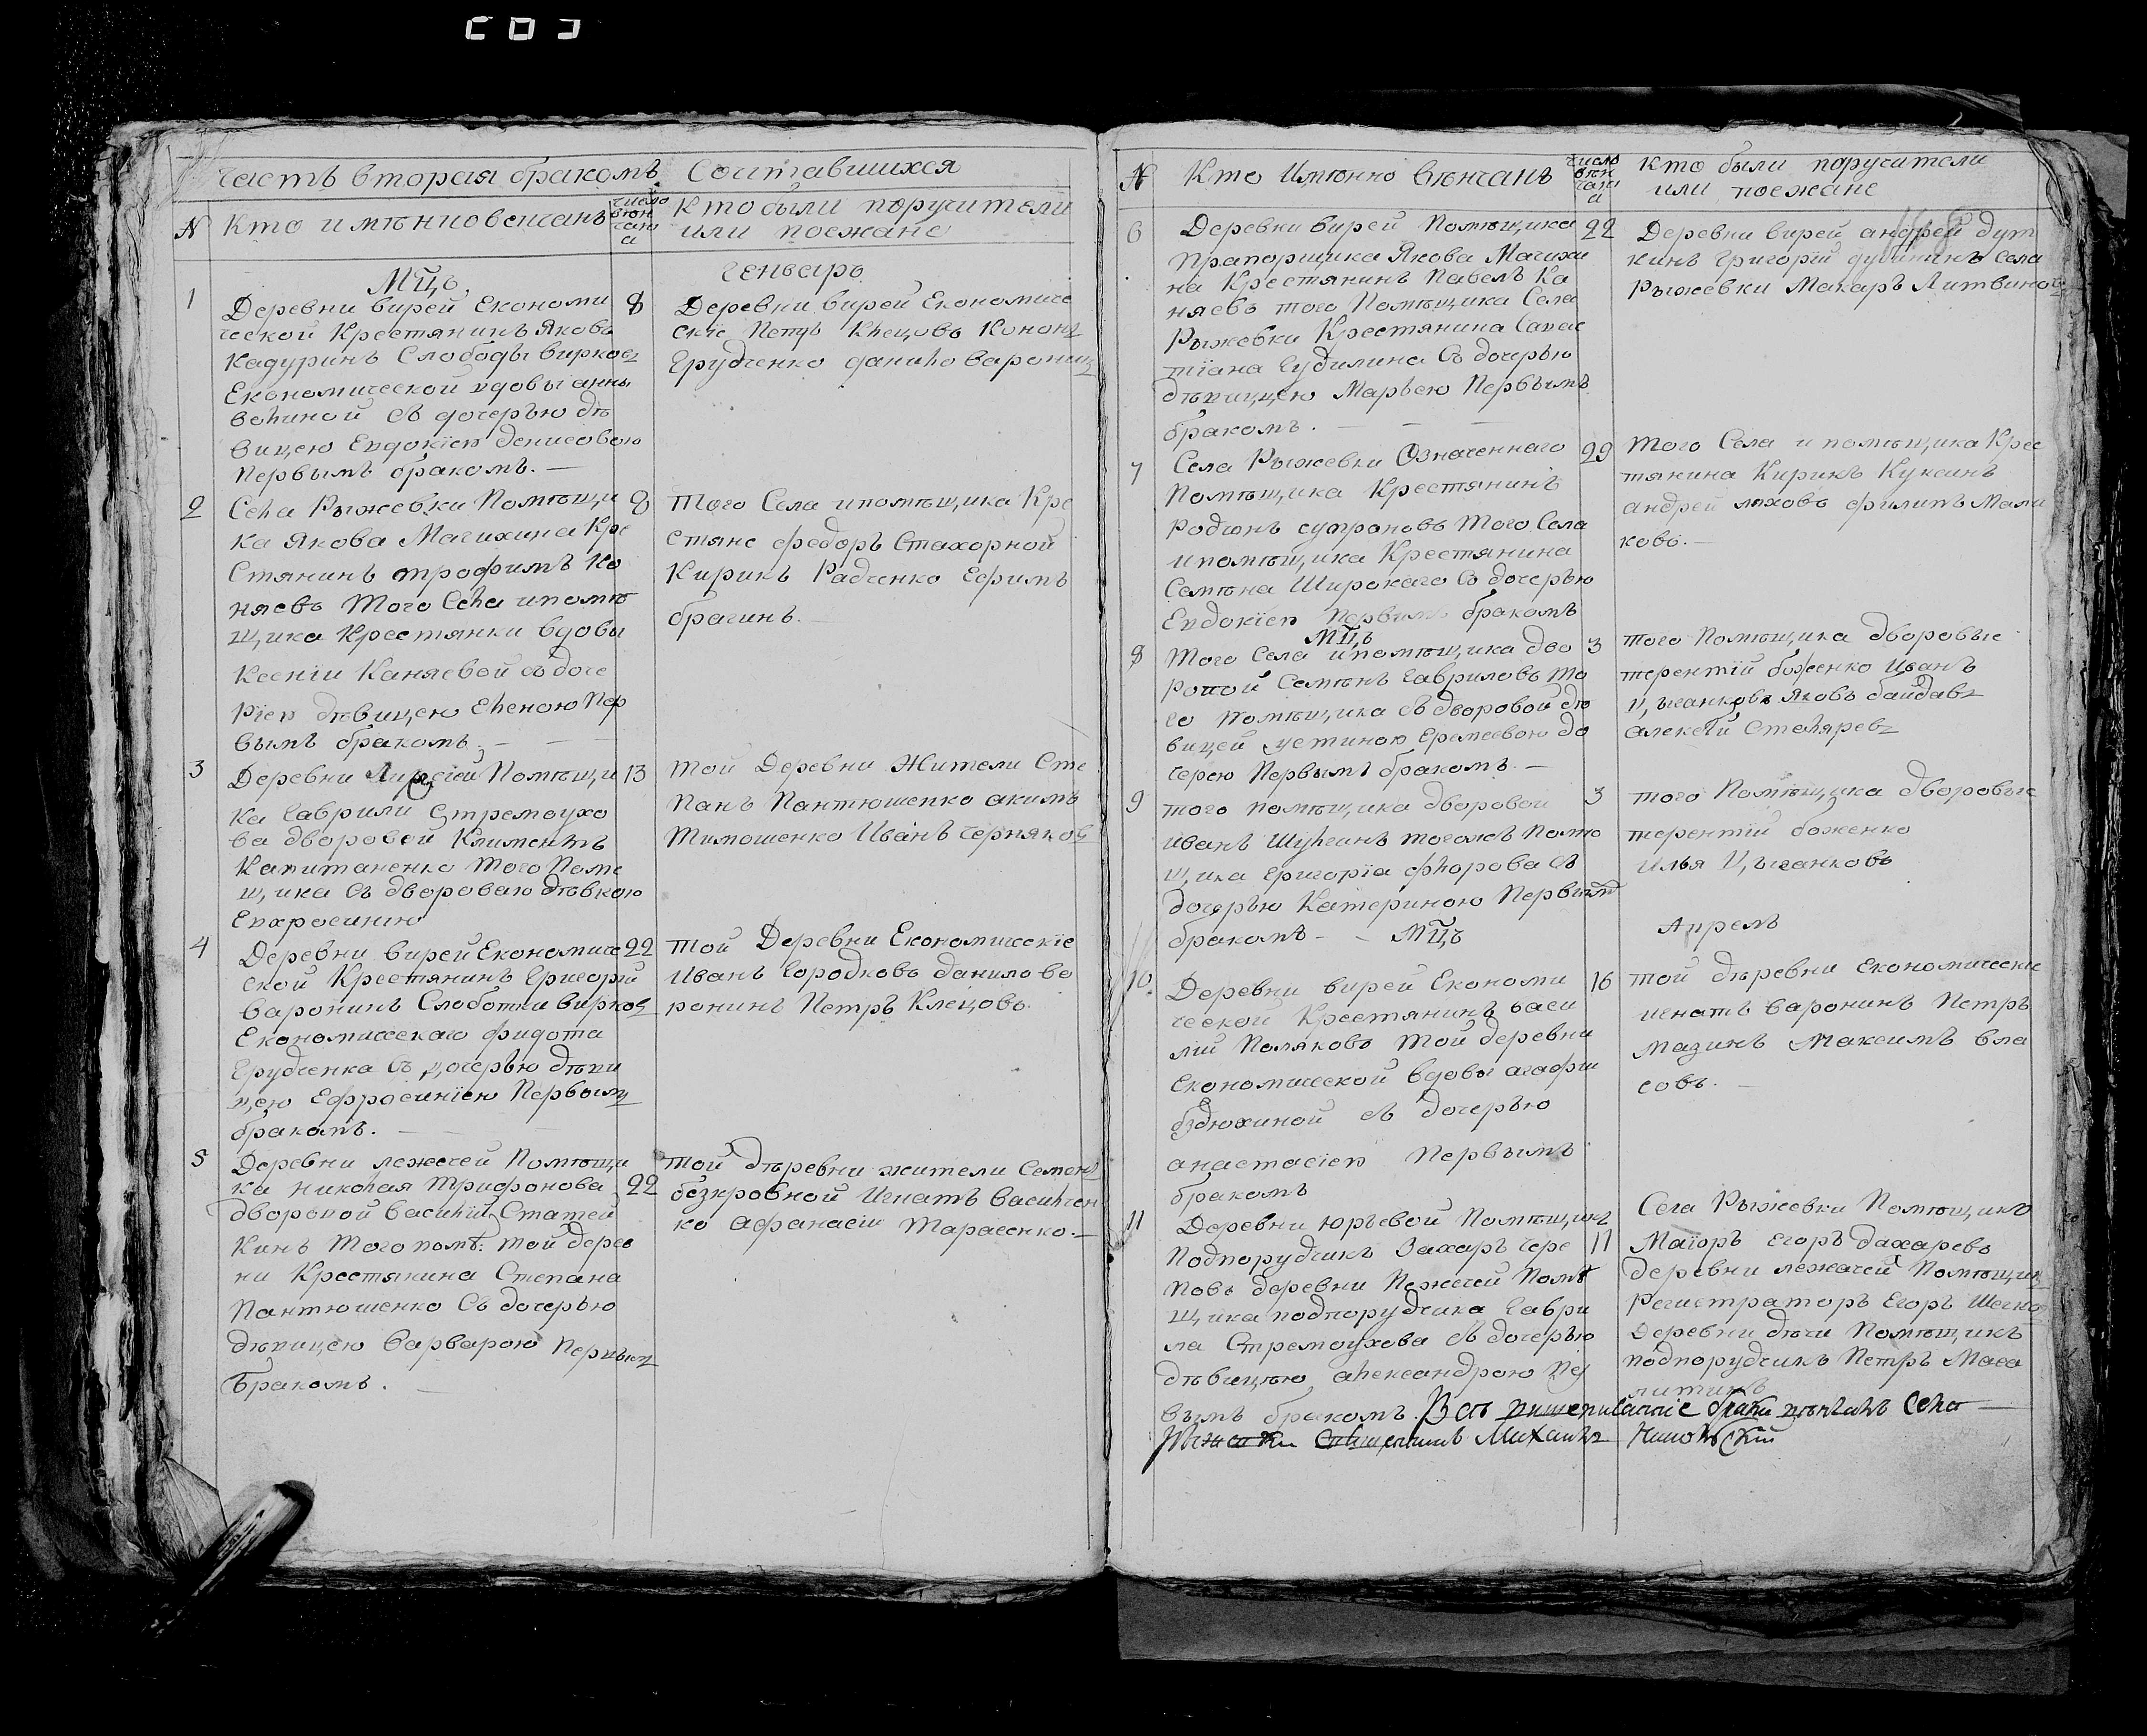 часть вторая бракомъ Сочитавшихся
N
Кто имѣнно венчанъ
число
вѣн
чани
а
Кто были поручители
или поежане
Мцъ
Генваръ
1
Деревни вирей Економи
ческой Крестянинъ Яковъ
Кадуринъ Слободы вирков
Економической вдовы анны
вониной съ дочерью дѣ
вицею Евдокїею денисовою
Первымъ бракомъ. —
8
Деревни вирей Економиче
скїе Петръ Клецовъ Кононъ
Грудченко данило Воронинъ
2
Села Рыжевки Помѣщи
ка Якова Магихина Кре
стянинъ трофимъ Ко
няевъ того Села и помѣ
щика Крестянки вдовы
Ксенїи Каняевой съ доче
рїею дѣвицею Еленою Пер
вымъ бракомъ. — —
8
Того Села и помѣщика Кре
стяне федоръ Стахорной
Кирикъ Радченко Ефимъ
брагинъ. —
3
Деревни Помѣщи
ка Гаврили Стремоухо
ва дворовой Климентъ
Капитаненко того Поме
щика съ дворовою дѣвкою
Евхросинию
13
той Деревни Жители Сте
панъ Пантюшенко акимъ
Тимошенко Иванъ Черняков
4
Деревни вирей Економиче
ской Крестянинъ Григорїй
Варонинъ Слоботки вирков
Економическаго фидота
Грудченка съ дочерью дѣви
цею Ефросинїею Первымъ
бракомъ. — —
22
той Деревни Економическїе
Иванъ Городковъ данило во
ронинъ Петръ Клецовъ.
5
Деревни лежачей Помѣщи
ка николая трифонова
дворовой василїй Статей
кинъ того помѣ: той дерев
ни Крестянина Степана
Пантюшенко съ дочерью
дѣвицею варварою Первым
бракомъ. —
22
той дѣревни жители Семенъ
безкровной Игнатъ василчен
ко афанасїй тарасенко. —
N
Кто Имѣнно вѣнчанъ
число
вѣн
чани
а
кто были поручители
или поежане
6
Деревни вирей Помѣщика
прапорщика Якова Магихи
на Крестянинъ Павелъ Ка
няевъ того Помѣщика Села
Рыжевки Крестянина Савас
тїана Гудилина съ дочерью
дѣвиццею Марьею Первымъ
бракомъ. — —
22
Деревни вирей андрей дут
кинъ григорїй села
Рыжевки Макаръ Литвинов
7
Села Рыжевки Означеннаго
Помѣщика Крестянинъ
Родионъ супроновъ того Села
и помѣщика Крестянина
Семѣна Широкаго съ дочерью
Евдокїею Первымъ бракомъ
29
того Села и помѣщика Крес
тянина Кирикъ Куксинъ
андрей ляховъ филипъ Мала
ховъ. —
Мцъ
8
того Села и помѣщика дво
ровой Семѣнъ Гавриловъ то
го помѣщика съ дворовой дѣ
вицей устиною Еремеевою до
черею Первымъ бракомъ. —
3
того Помѣщика дворовые
терентїй боженко Иванъ
Цыганковъ Яковъ байдавъ
алексѣй Столяревъ
9
того помѣщика дворовой
Иванъ Шулгинъ тогожъ Помѣ
щика Григорїа фролова съ
дочерью Катериною Первымъ
бракомъ — —
3
того Помѣщика дворовые
терентїй боженко
Илья Цыганковъ
Мцъ
Апрель
10
Деревни вирей Економи
ческой Крестянинъ васи
лїй Поляковъ той деревни
Економической вдовы агафїи
бздюхиной съ дочерью
анастасїею Первымъ
бракомъ
16
той дѣревни економически
игнатъ варонинъ Петръ
мазинъ Максимъ вла
совъ. —
11
Деревни юрьевой Помѣщикъ
Подпорудчикъ Захаръ Чере
повъ деревни Лежачей Помѣ
щика подпорудчика Гаври
ла Стремоухова съ дочерью
дѣвицѣю александрою Пер
вымъ бракомъ.
11
Села Рыжевки Помѣщикъ
Маїоръ Егоръ Захаревъ
деревни лежачей Помѣщик
Регистраторъ Егоръ
Деревни Помѣщикъ
подпорудчикъ Петръ Маса
литинъ
Всѣ вишеписаннїе браки вѣнчалъ Села —
Рыжевки Священникъ Михаилъ